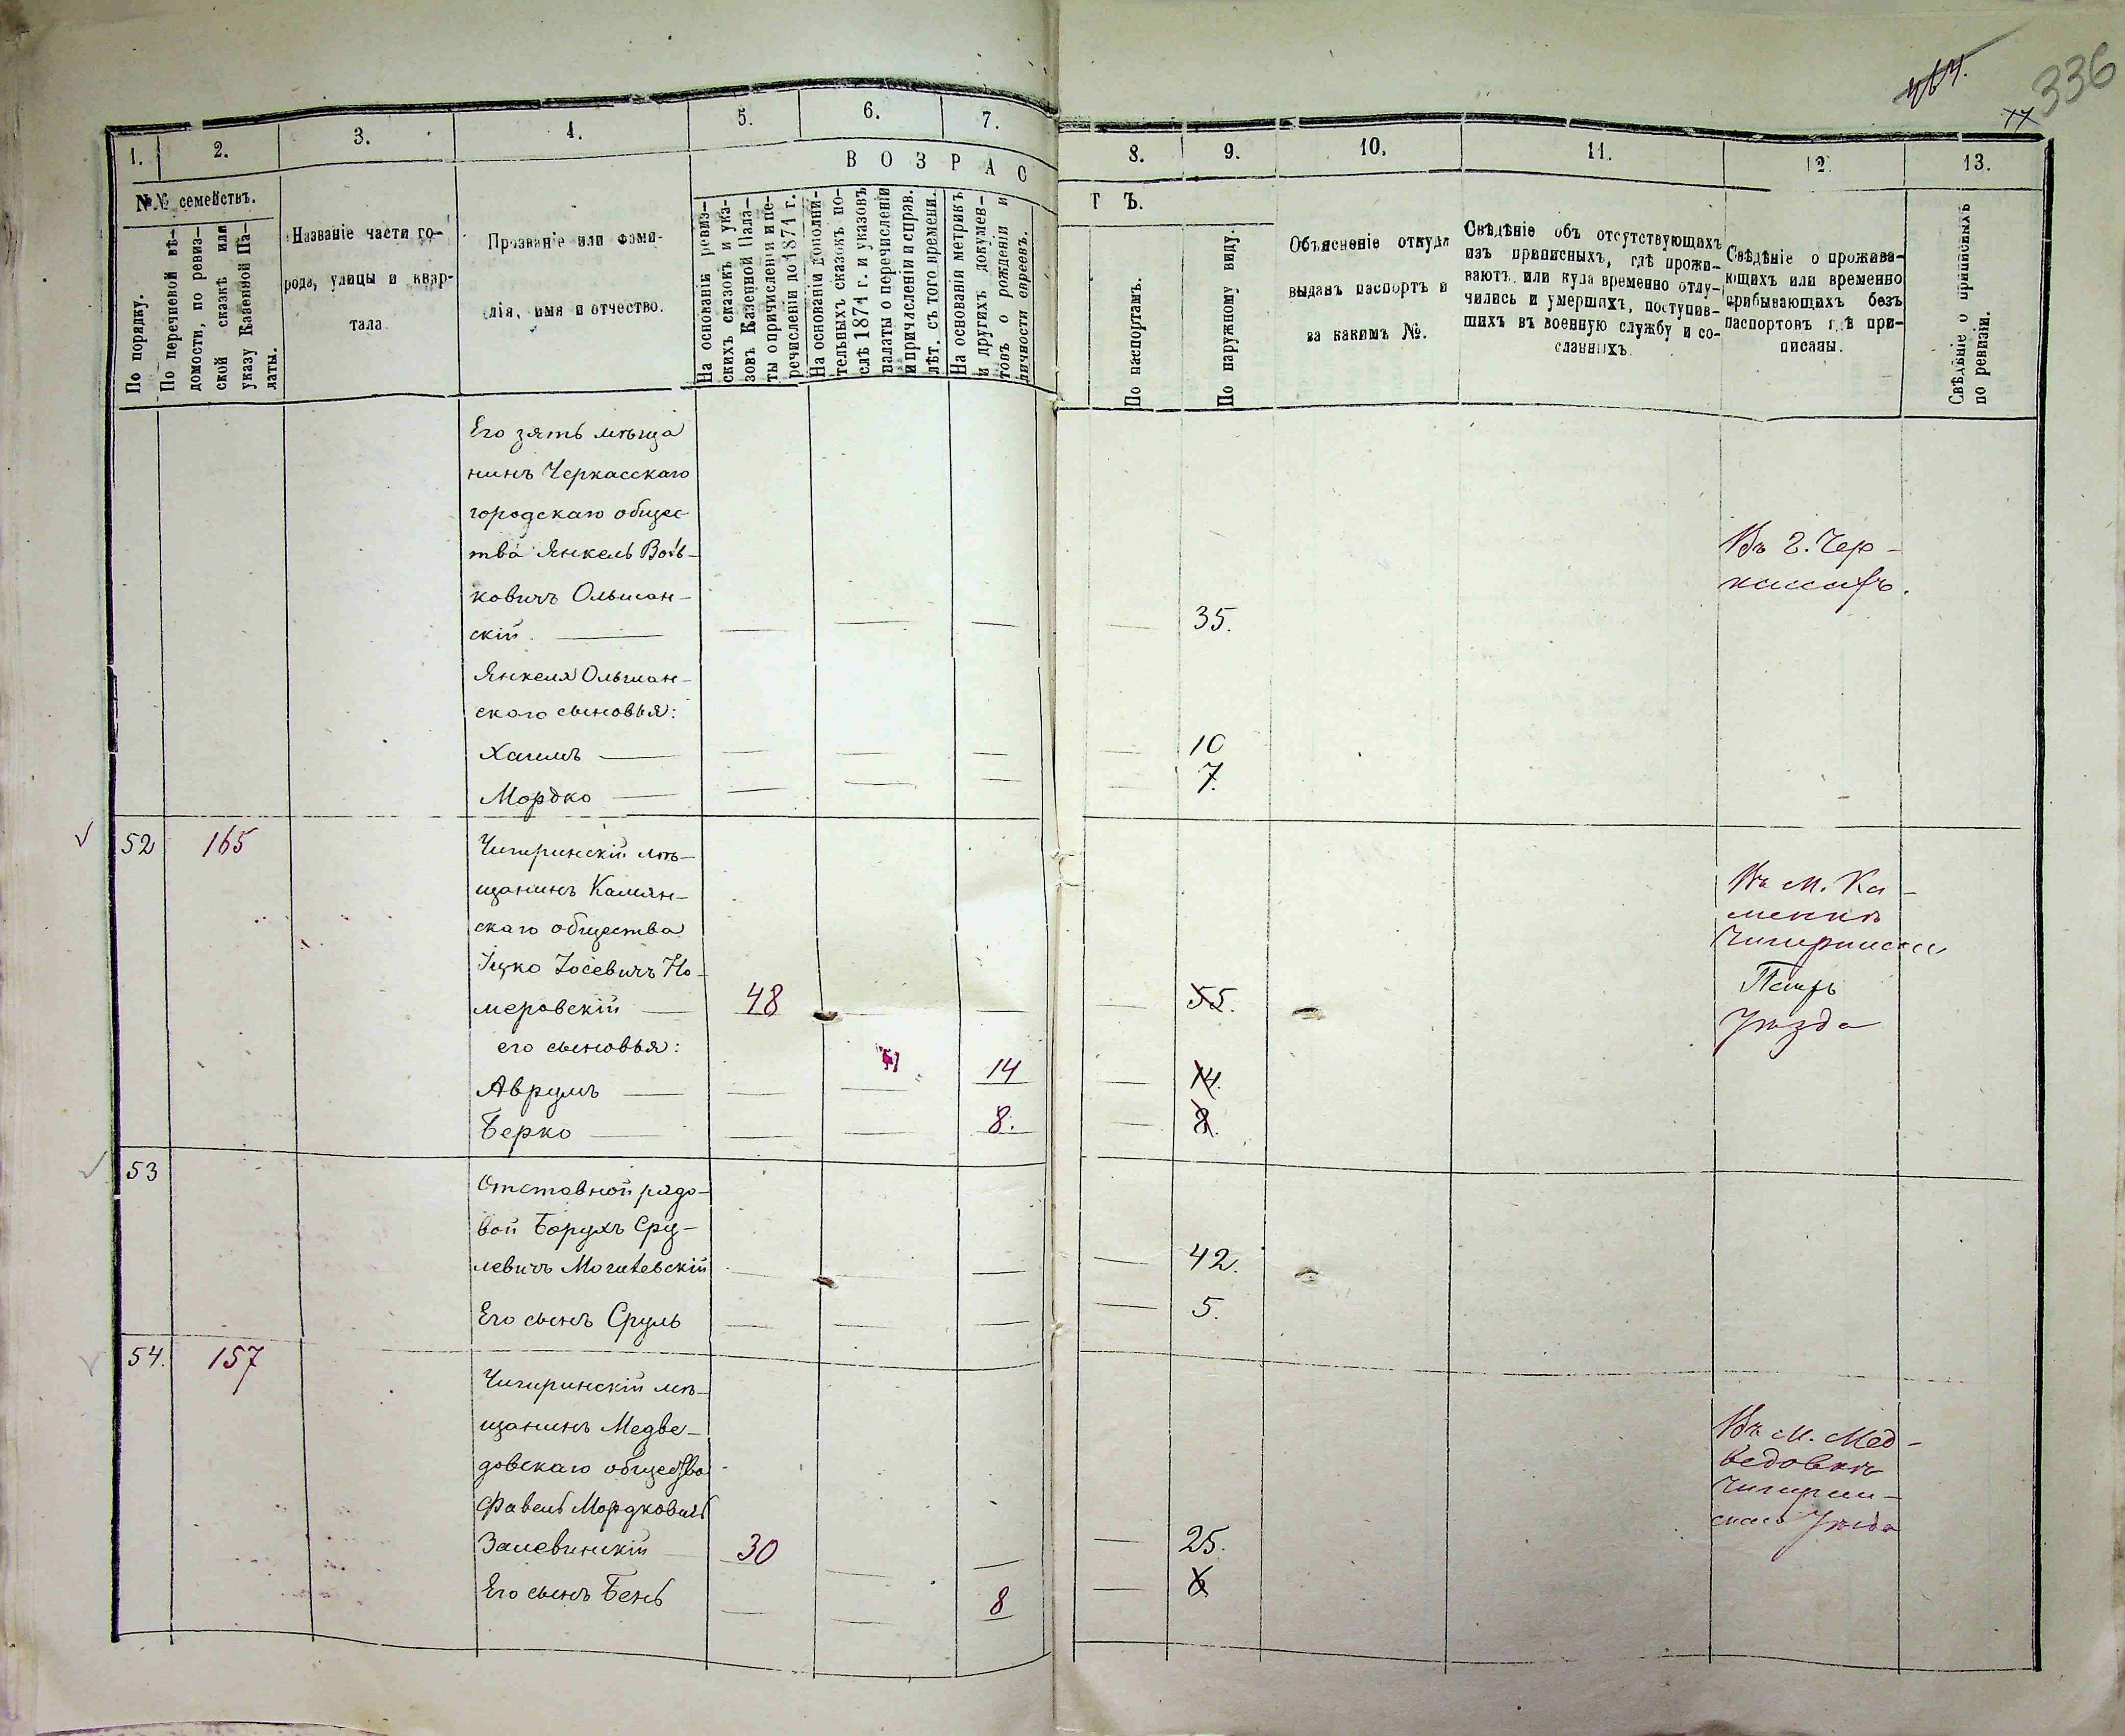 464.
336
77
1. 2. 3. 4. 5. 6. 7. 8. 9. 10. 11. 12. 13.
В О З Р А С Т Ъ.
№№ семействъ.
По порядку.
По перечневой вѣ-
домости, по ревиз-
ской сказкѣ или
указу Казенной Па-
латы.
Названіе части го-
рода, улицы и квар-
тала
Прозваніе или фами-
лія, имя и отчество.
На основаніи ревиз-
скихъ сказокъ и ука-
зовъ Казенной Пала-
ты о причисленіи и пе-
речисленіи до 1871 г.
На основаніи дополни-
тельныхъ сказокъ по-
слѣ 1871 г. и указовъ
палаты о перечисленіи
и причисленіи и справ.
лѣт. съ того времени.
На основаніи метрикъ
и другихъ докумен-
товъ о рожденіи и
личности евреевъ.
По паспортамъ.
По наружному виду.
Объясненіе откуда
выданъ паспортъ и
за какимъ №.
Свѣдѣніе объ отсутствующихъ
изъ приписныхъ, гдѣ прожи-
ваютъ или куда временно отлу-
чились и умершихъ, поступив-
шихъ въ военную службу и со-
сланныхъ.
Свѣдѣніе о прожива-
ющихъ или временно
прибывающихъ безъ
паспортовъ гдѣ при-
писаны.
Свѣдѣніе о приписныхъ
по ревизіи.
Его зять мѣща
нинъ Черкасскаго
городскаго общес
тва Янкель Воль-
ковичъ Ольшан-
скій — — — — — 35.
Въ г. Чер-
кассахъ.
Янкеля Ольшан-
скаго сыновья:
Хаимъ — — — — — 10
Мордко — — — — — 7.
52 165
Чигиринскій мѣ-
щанинъ Камян-
скаго общества
Ицко Іосевичъ По-
меровскій — 48 — — 55.
Въ м. Ка-
менкѣ
Чигиринска
го
Уѣзда
его сыновья:
Аврумъ — — — 14 — 14.
Берко — — — 8. — 8.
53
Отставной рядо-
вой Борухъ Сру-
левичъ Могилевскій — — — 42.
Его сынъ Сруль — — — — 5.
54. 157
Чигиринскій мѣ-
щанинъ Медве-
довскаго общества
Фавель Мордковичъ
Залевинскій — 30 — — — 25.
Въ м. Мед-
ведовкѣ
Чигирин-
скаго Уѣзда
Его сынъ Бень — — 8 — 6